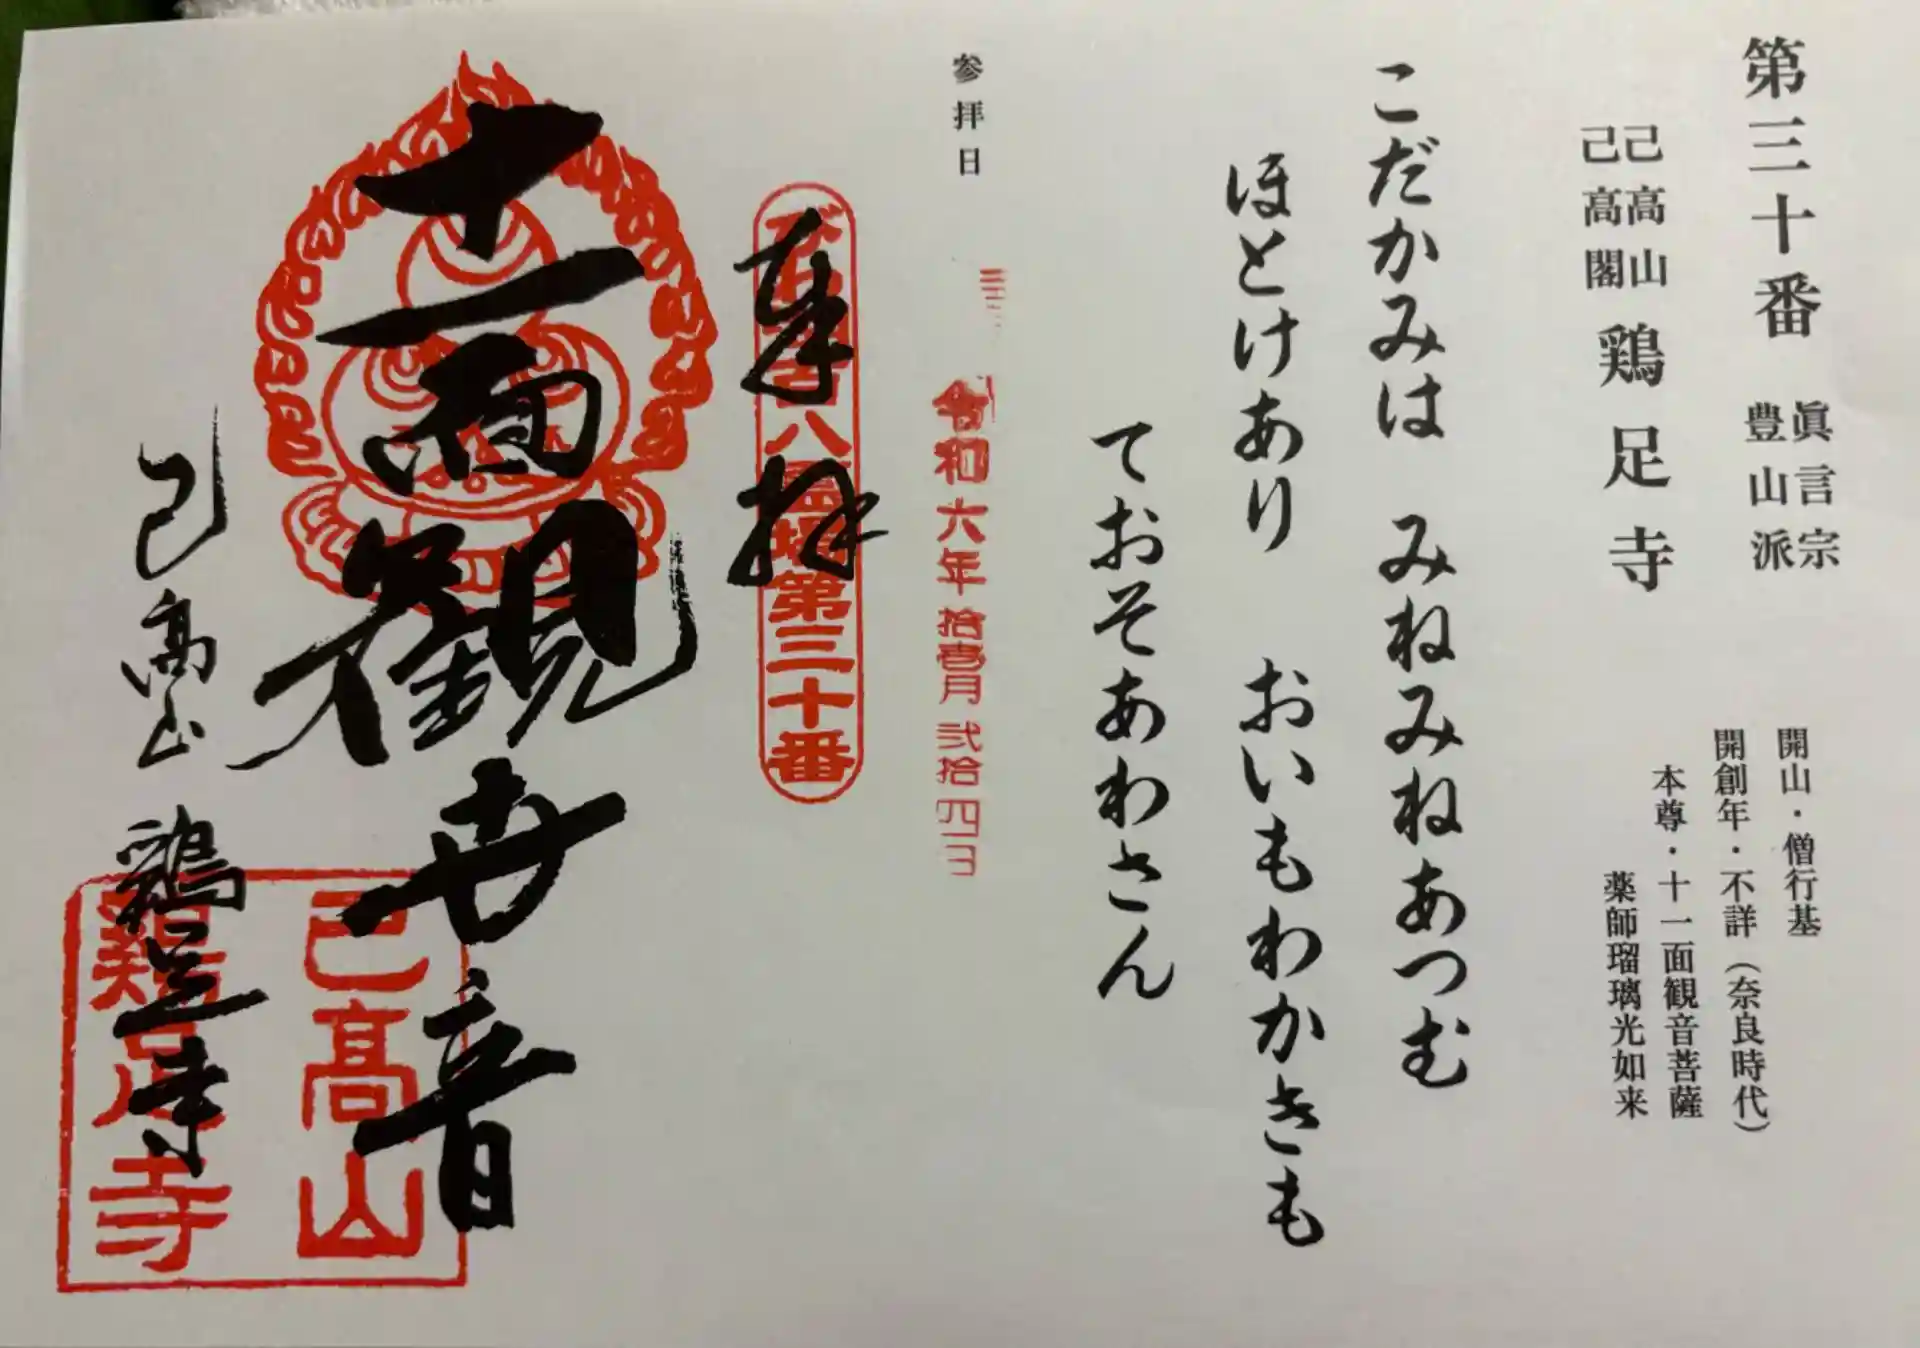 第三十番
眞言宗
豊山派
己高山
己高閣
鶏足寺
開山・僧行基
開創年・不詳（奈良時代）
本尊・十一面観音菩薩
薬師瑠璃光如来
こだかみは　みねみねあつむ
ほとけあり　おいもわかきも
ておそあわさん
参拝日
令和六年拾壱月弐拾四日
奉拝
八霊場第三十番
十一面観世音
己高山　鶏足寺
己高山
鶏足寺